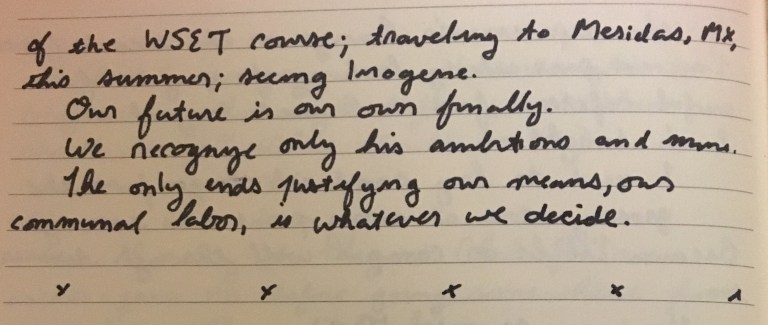 of the WSET course; traveling to Mesidas, Mx,
this summer; seeing Imogene.
Our future is our own finally.
We recognize only his ambitions and mine.
The only ends justifying our means, our
communal labor, is whatever we decide.
x x x x x